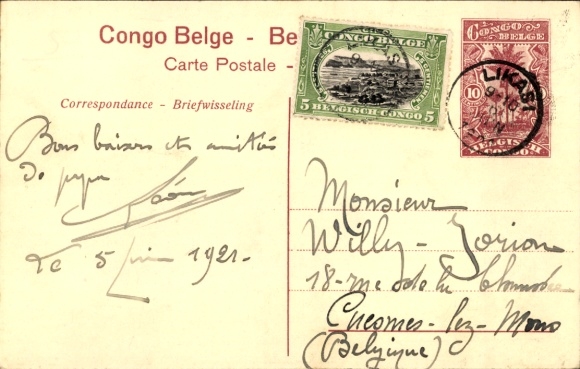 Congo Belge - Be
Carte Postale -
Correspondance - Briefwisseling
CONGO BELGE
5 BELGISCH-CONGO 5
CONGO
BELGE
10
BELGISCH
CONGO
LIKASI
Bons baisers et amitiés
De papa
Le 5 juin 1921-
Monsieur
Willy - Jorion
18-rue de la
Cuesmes-lez-Mons
(Belgique)